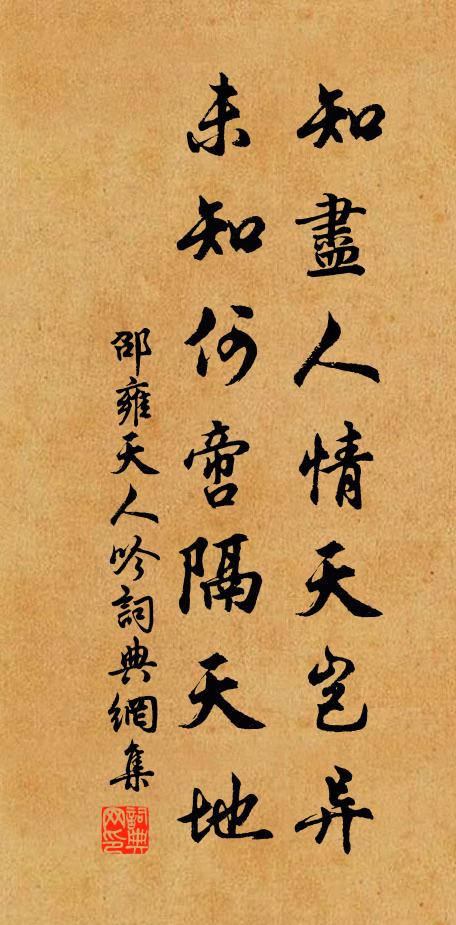 知盡人情天豈异
未知何啻隔天地
邵雍天人吟詞典網集
詞典网印